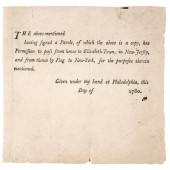 THE above-mentioned
having signed a Parole, of which the above is a copy, has
Permission to pass from hence to Elizabeth-Town, in New-Jersey,
and from thence by Flag to New-York, for the purposes therein
mentioned.
Given under my hand at Philadelphia, this
Day of 1780.